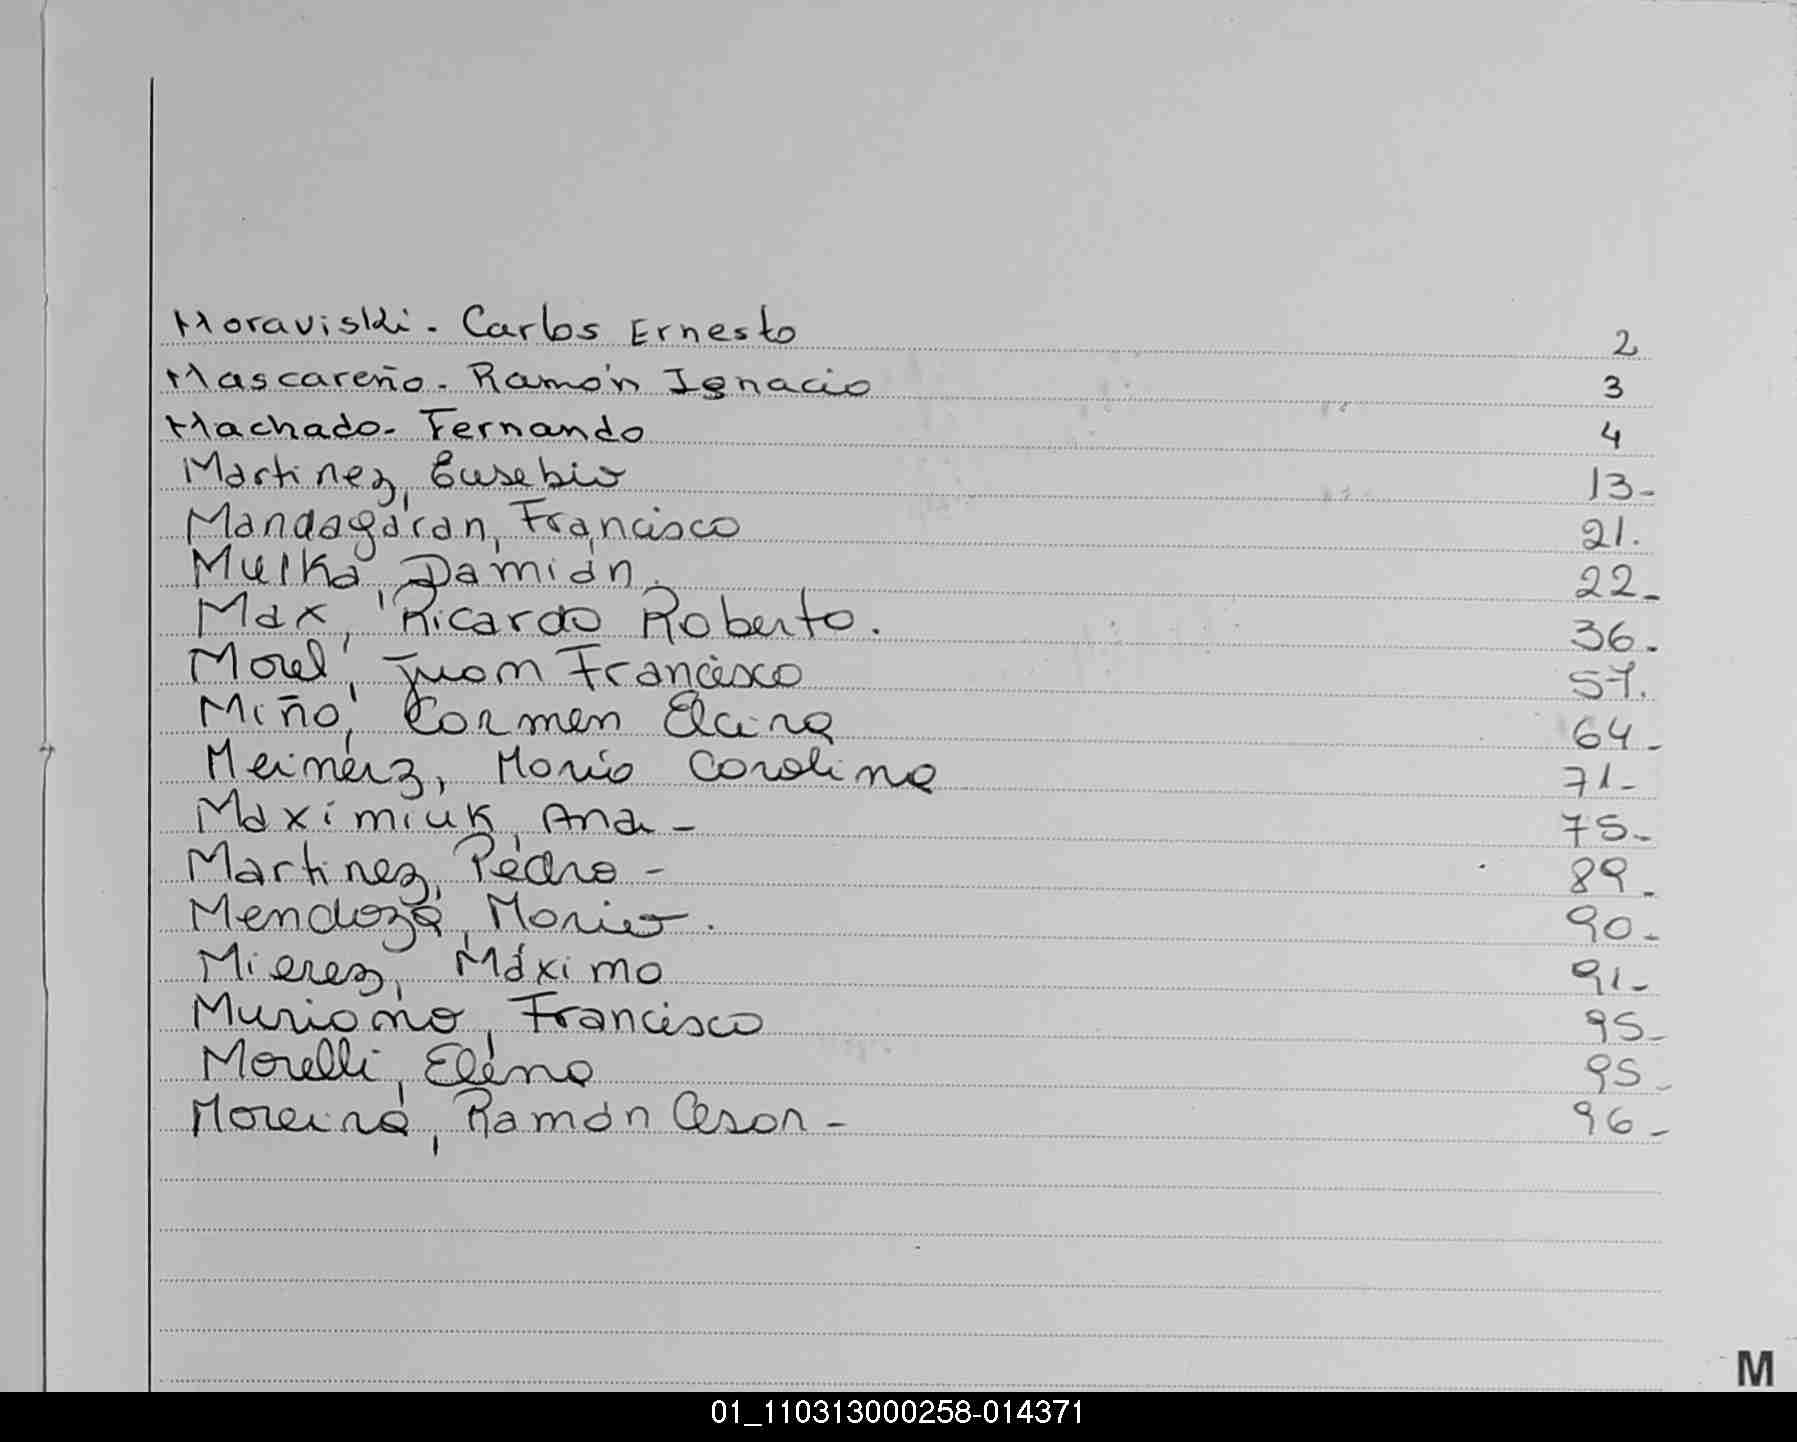 Moraviski - Carlos Ernesto 2
Mascareño - Ramón Ignacio 3
Machado - Fernando 4
Martinez, Eusebio 13-
Mandagaran, Francisco 21.
Mulka, Damián. 22-
Max, Ricardo Roberto. 36-
Morel, Juan Francisco 57.
Miño, Carmen Elcira 64-
Meinerz, Maria Carolina 71-
Maximiuk, Ana - 75-
Martinez, Pedro - 89-
Mendoza, Mario. 90-
Mierez, Máximo 91-
Muriono, Francisco 95-
Morelli, Elena 95-
Moreira, Ramón Cesar - 96-
M
01_110313000258-014371